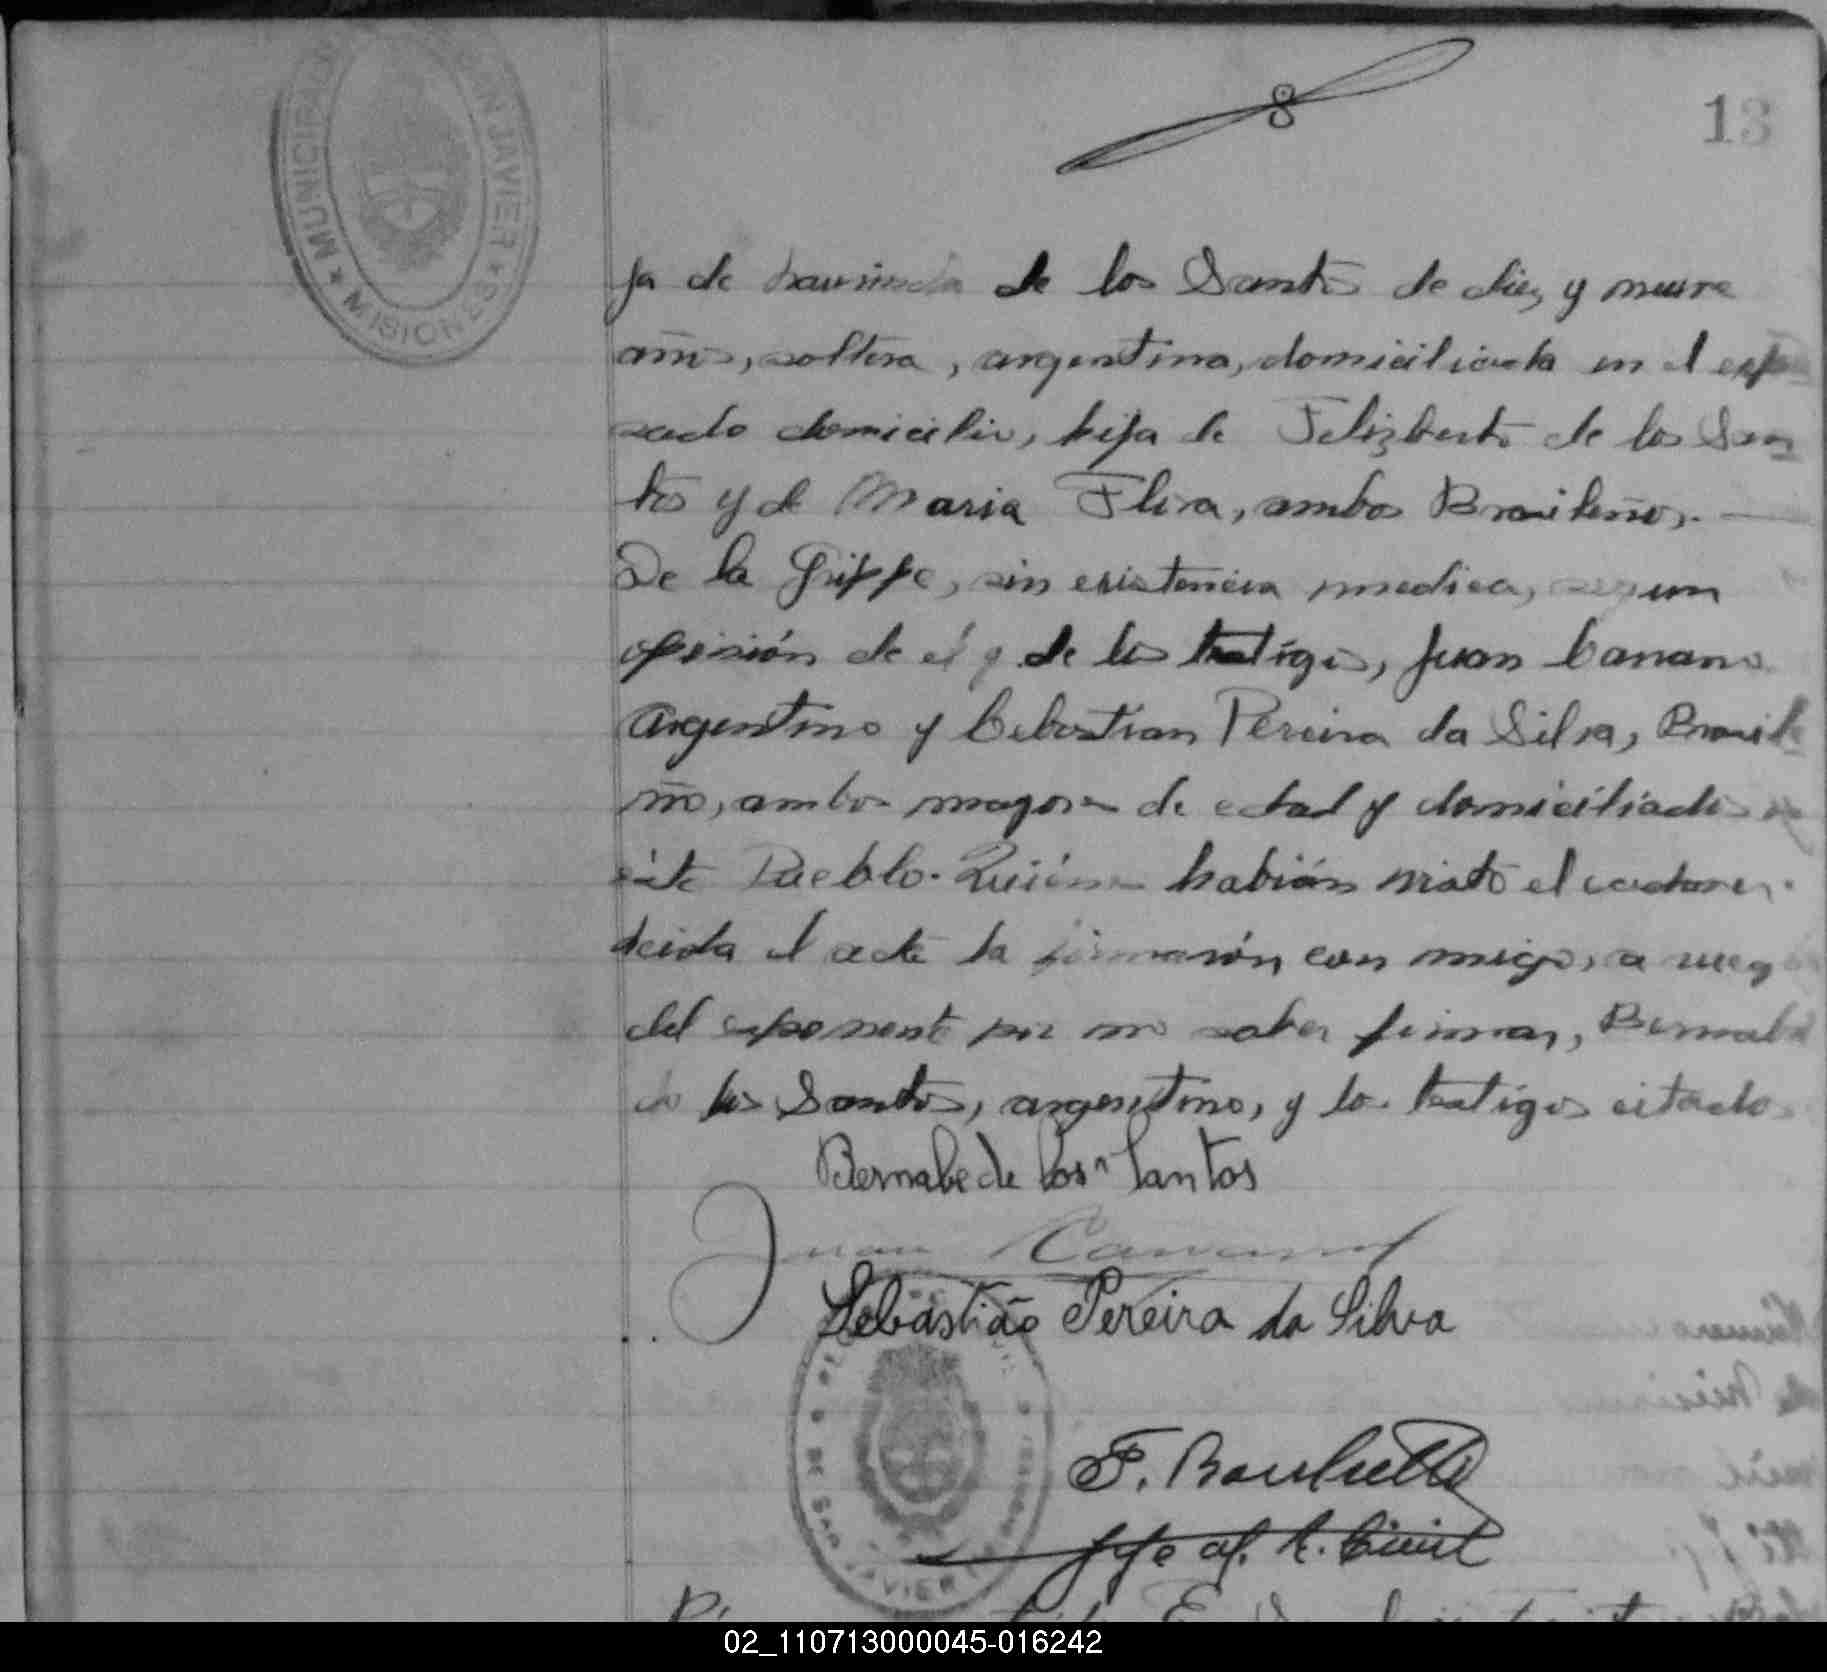 8
13
MUNICIPIO SAN JAVIER
* MISIONES *
ja de de los Santos de diez y nueve
años, soltera, argentina, domiciliada en el expre
sado domicilio, hija de Felizberto de los San
tos y de Maria Flira, ambos Brasileños.
De la Grippe, sin existencia medica, segun
opinión de él y de los testigos, Juan Canano
Argentino y Cebastian Pereira da Silva, Brasile
ño, ambos mayores de edad y domiciliados en
éste Pueblo. Quiénes habián visto el cadaver.
Leida el acta la firmarón con migo, a ruego
del exponente por no saber firmar, Bernabé
de los Santos, argentino, y los testigos citados
Bernabe de los Santos
Juan
Sebastião Pereira da Silva
DE SAN JAVIER
F.
Jefe of. R. Civil
02_110713000045-016242